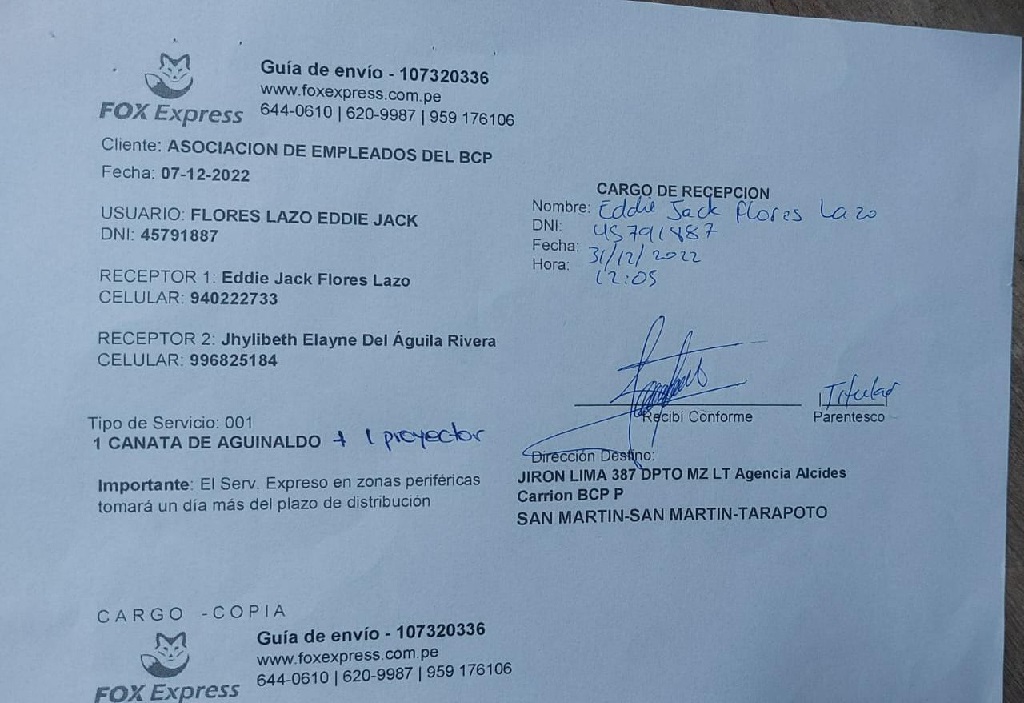 FOX Express
Guía de envío - 107320336
www.foxexpress.com.pe
644-0610 | 620-9987 | 959 176106
Cliente: ASOCIACION DE EMPLEADOS DEL BCP
Fecha: 07-12-2022
USUARIO: FLORES LAZO EDDIE JACK
DNI: 45791887
RECEPTOR 1. Eddie Jack Flores Lazo
CELULAR: 940222733
RECEPTOR 2: Jhylibeth Elayne Del Águila Rivera
CELULAR: 996825184
Tipo de Servicio: 001
1 CANATA DE AGUINALDO + 1 proyector
Importante: El Serv. Expreso en zonas periféricas
tomará un día más del plazo de distribución
CARGO DE RECEPCION
Nombre: Eddie Jack Flores Lazo
DNI: 45791887
Fecha: 31/12/2022
Hora: 12:05
Recibi Conforme
Titular
Parentesco
Dirección Destino:
JIRON LIMA 387 DPTO MZ LT Agencia Alcides
Carrion BCP P
SAN MARTIN-SAN MARTIN-TARAPOTO
CARGO - COPIA
FOX Express
Guía de envío - 107320336
www.foxexpress.com.pe
644-0610 | 620-9987 | 959 176106